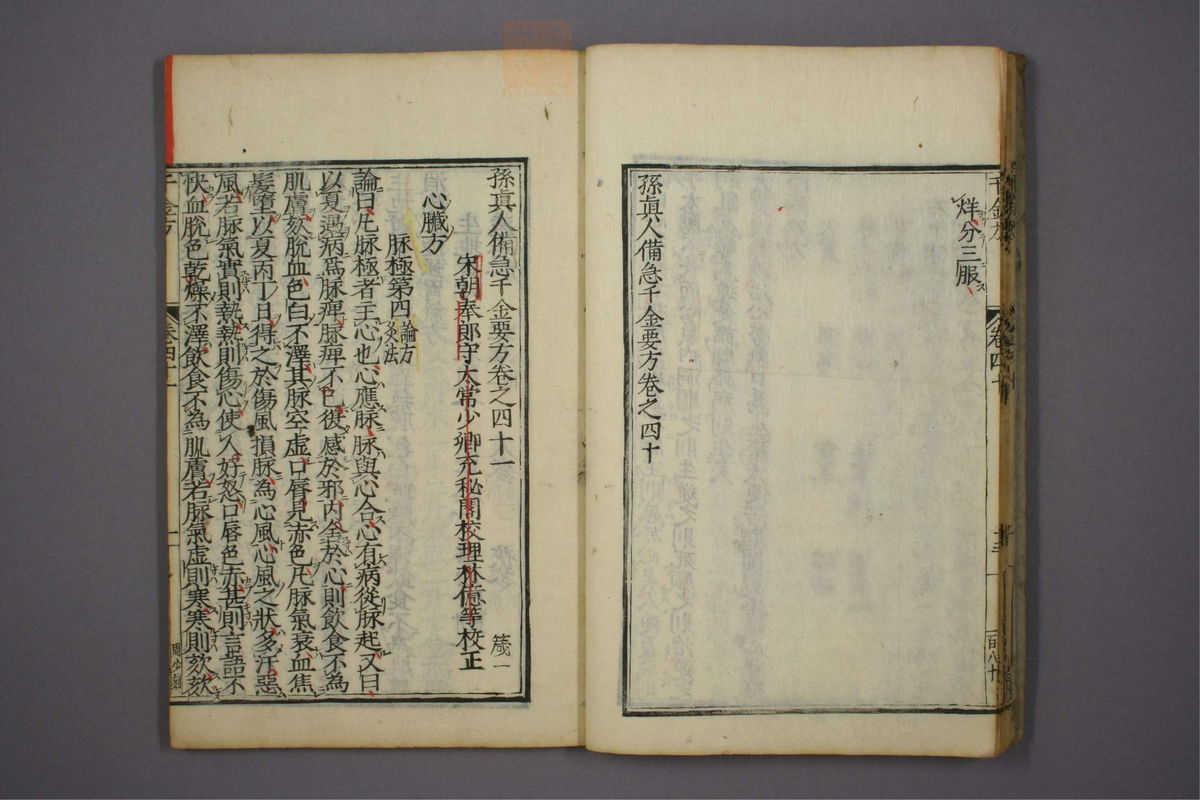 千金方
卷四十
十三
一百八十
烊分三服
孫眞人備急千金要方卷之四十
孫眞人備急千金要方卷之四十一
箴一
宋朝奉郎守太常少卿充秘閣校理林億等校正
心臟方
脈極第四 論方灸法
論曰凡脈極者主心也心應脈脈與心合心有病從脈起又曰
以夏遇病爲脈痺脈痺不已復感於邪內舍於心則飲食不為
肌膚欬脫血色白不澤其脈空虛口唇見赤色凡脈氣衰血焦
髮墮以夏丙丁日得之於傷風損脈為心風心風之狀多汗惡
風若脈氣實則熱熱則傷心使人好怒口唇色赤甚則言語不
快血脫色乾燥不澤飲食不為肌膚若脈氣虛則寒寒則欬欬
千金方
卷四十一
一
周少刻